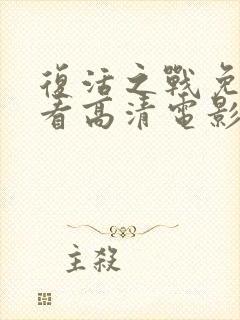 復活之戰免
看高清電影
主殺